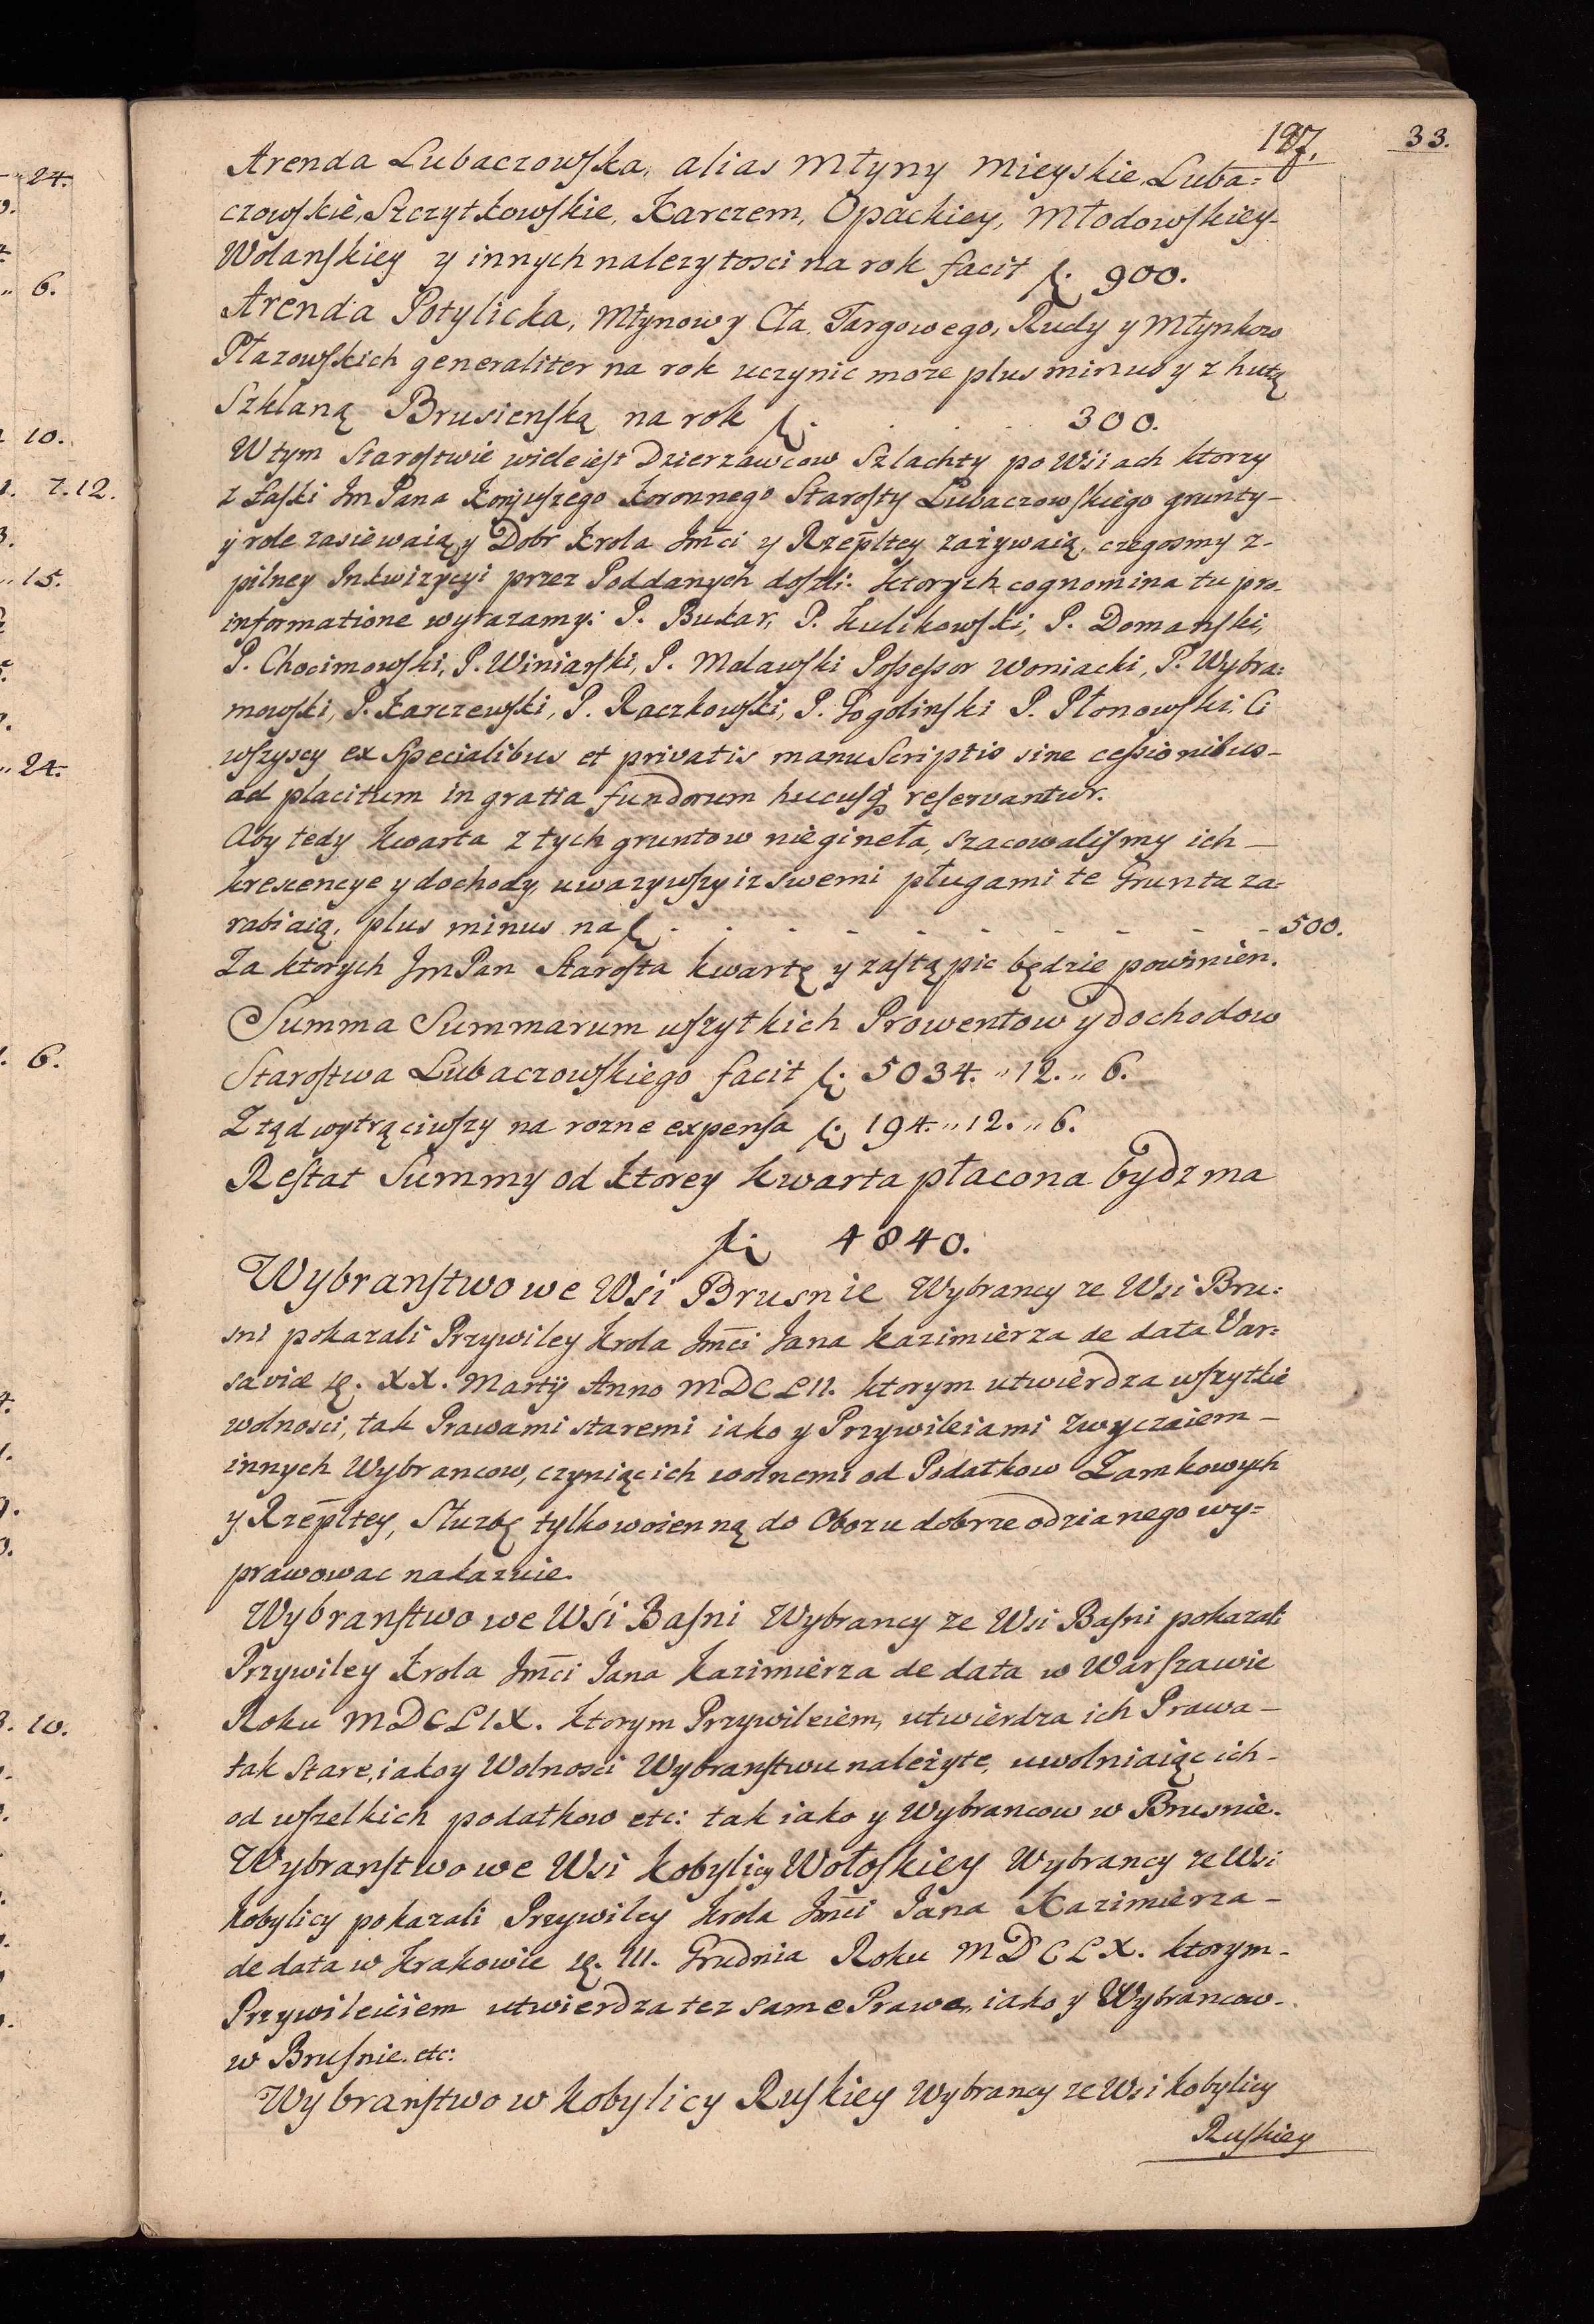 197.
33.
Arenda Lubaczowſka, alias Młyny Mieyskie, Luba:
czowſkie, Szczytkowſkie, Karczem, Opackiey, Młodowſkiey-
Wolanſkiey y innych nalezytosci na rok facit f. 900.
Arenda Potylicka, Młynow y Cła Targowego, Rudy y Młynkow
Płazowſkich generaliter na rok uczynic moze plus minus y z hutą
Szklaną Brusienſką na rok f. . . . 300.
W tym Staroſtwie wiele ieſt Dzierzawcow Szlachty po Wsiach ktorzy
z Łaſki Jm Pana Konjuſzego Koronnego Staroſty Lubaczowſkiego grunty-
y role zasiewaią, y Dobr Krola Jmci y Rzepltey zażywaią, czegosmy z-
pilney Inkwizycyi przez Poddanych doſzli: ktorych cognomina tu pro-
informatione wyrazamy: P. Bukar, P. Kulikowſki, P. Domanſki,
P. Chocimowſki, P. Winiarſki, P. Malawſki Poſseſsor Woniacki, P. Wybra:
mowſki, P. Karczewſki, P. Raczkowſki, P. Gogolinſki P. Płonowſki. Ci
wſzyscy ex Specialibus et privatis manuScriptis sine ceſsionibus-
ad placitum in gratia fundorum hucuſq; reſervantur.
Aby tedy kwarta z tych gruntow nie gineła, szacowaliſmy ich-
kreſcencye y dochody, uwazywſzy iz swemi pługami te Grunta za-
rabiaią, plus minus na f. - . - . - - - - - - 500.
Za ktorych Jm Pan Staroſta kwartę y zaſtąpic będzie powinien.
Summa Summarum wſzytkich Prowentow y dochodow
Staroſtwa Lubaczowſkiego facit f. 5034. „ 12. „ 6.
Ztąd wytrąciwſzy na rozne expenſa f. 194. „ 12. „ 6.
Reſtat Summy od ktorey kwarta płacona bydz ma
f. 4840.
Wybranſtwo we Wsi Brusnie Wybrancy ze Wsi Bru:
sni pokazali Przywiley Krola Jmci Jana Kazimierza de data Var:
saviæ XX. Martij Anno MDCLII. ktorym utwierdza wſzytkie
wolnosci, tak Prawami staremi iako y Przywileiami zwyczaiem-
innych Wybrancow, czyniąc ich wolnemi od Podatkow Zamkowych
y Rzepltey, Słuzbę tylko woienną do Obozu dobrze odzianego wy=
prawowac nakazuie.
Wybranſtwo we Wsi Baſni Wybrancy ze Wsi Baſni pokazali
Przywiley Krola Jmci Jana Kazimierza de data w Warſzawie
Roku MDCLIX. ktorym Przywileiem, utwierdza ich Prawa-
tak stare, iako y Wolnosci Wybranſtwu należyte, uwolniaiąc ich-
od wſzelkich podatkow etc: tak iako y Wybrancow w Brusnie.
Wybranſtwo we Wsi Kobylicy Wołoſkiey Wybrancy ze Wsi
Kobylicy pokazali Przywiley Krola Jmci Jana Kazimierza-
de data w Krakowie III. Grudnia Roku MDCLX. ktorym-
Przywileiem utwierdza tez same Prawa, iako y Wybrancow-
w Bruſnie. etc:
Wybranſtwo w Kobylicy Ruſkiey Wybrancy ze Wsi Kobylicy
Ruſkiey
24.
6.
10.
7.12.
15.
24.
6.
10.